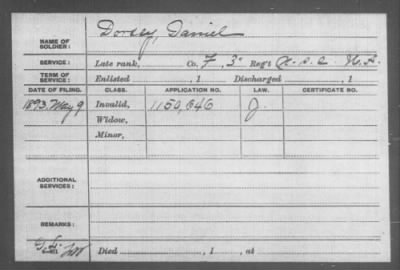 NAME OF SOLDIER: Dorsey, Daniel
SERVICE: Late rank, Co. F, 3" Reg't U.S.C. H.A.
TERM OF SERVICE: Enlisted , 1 Discharged , 1
DATE OF FILING. CLASS. APPLICATION NO. LAW. CERTIFICATE NO.
1893 May 9 Invalid, 1150,646 J.
Widow,
Minor,
ADDITIONAL SERVICES:
REMARKS:
Died , 1 , at